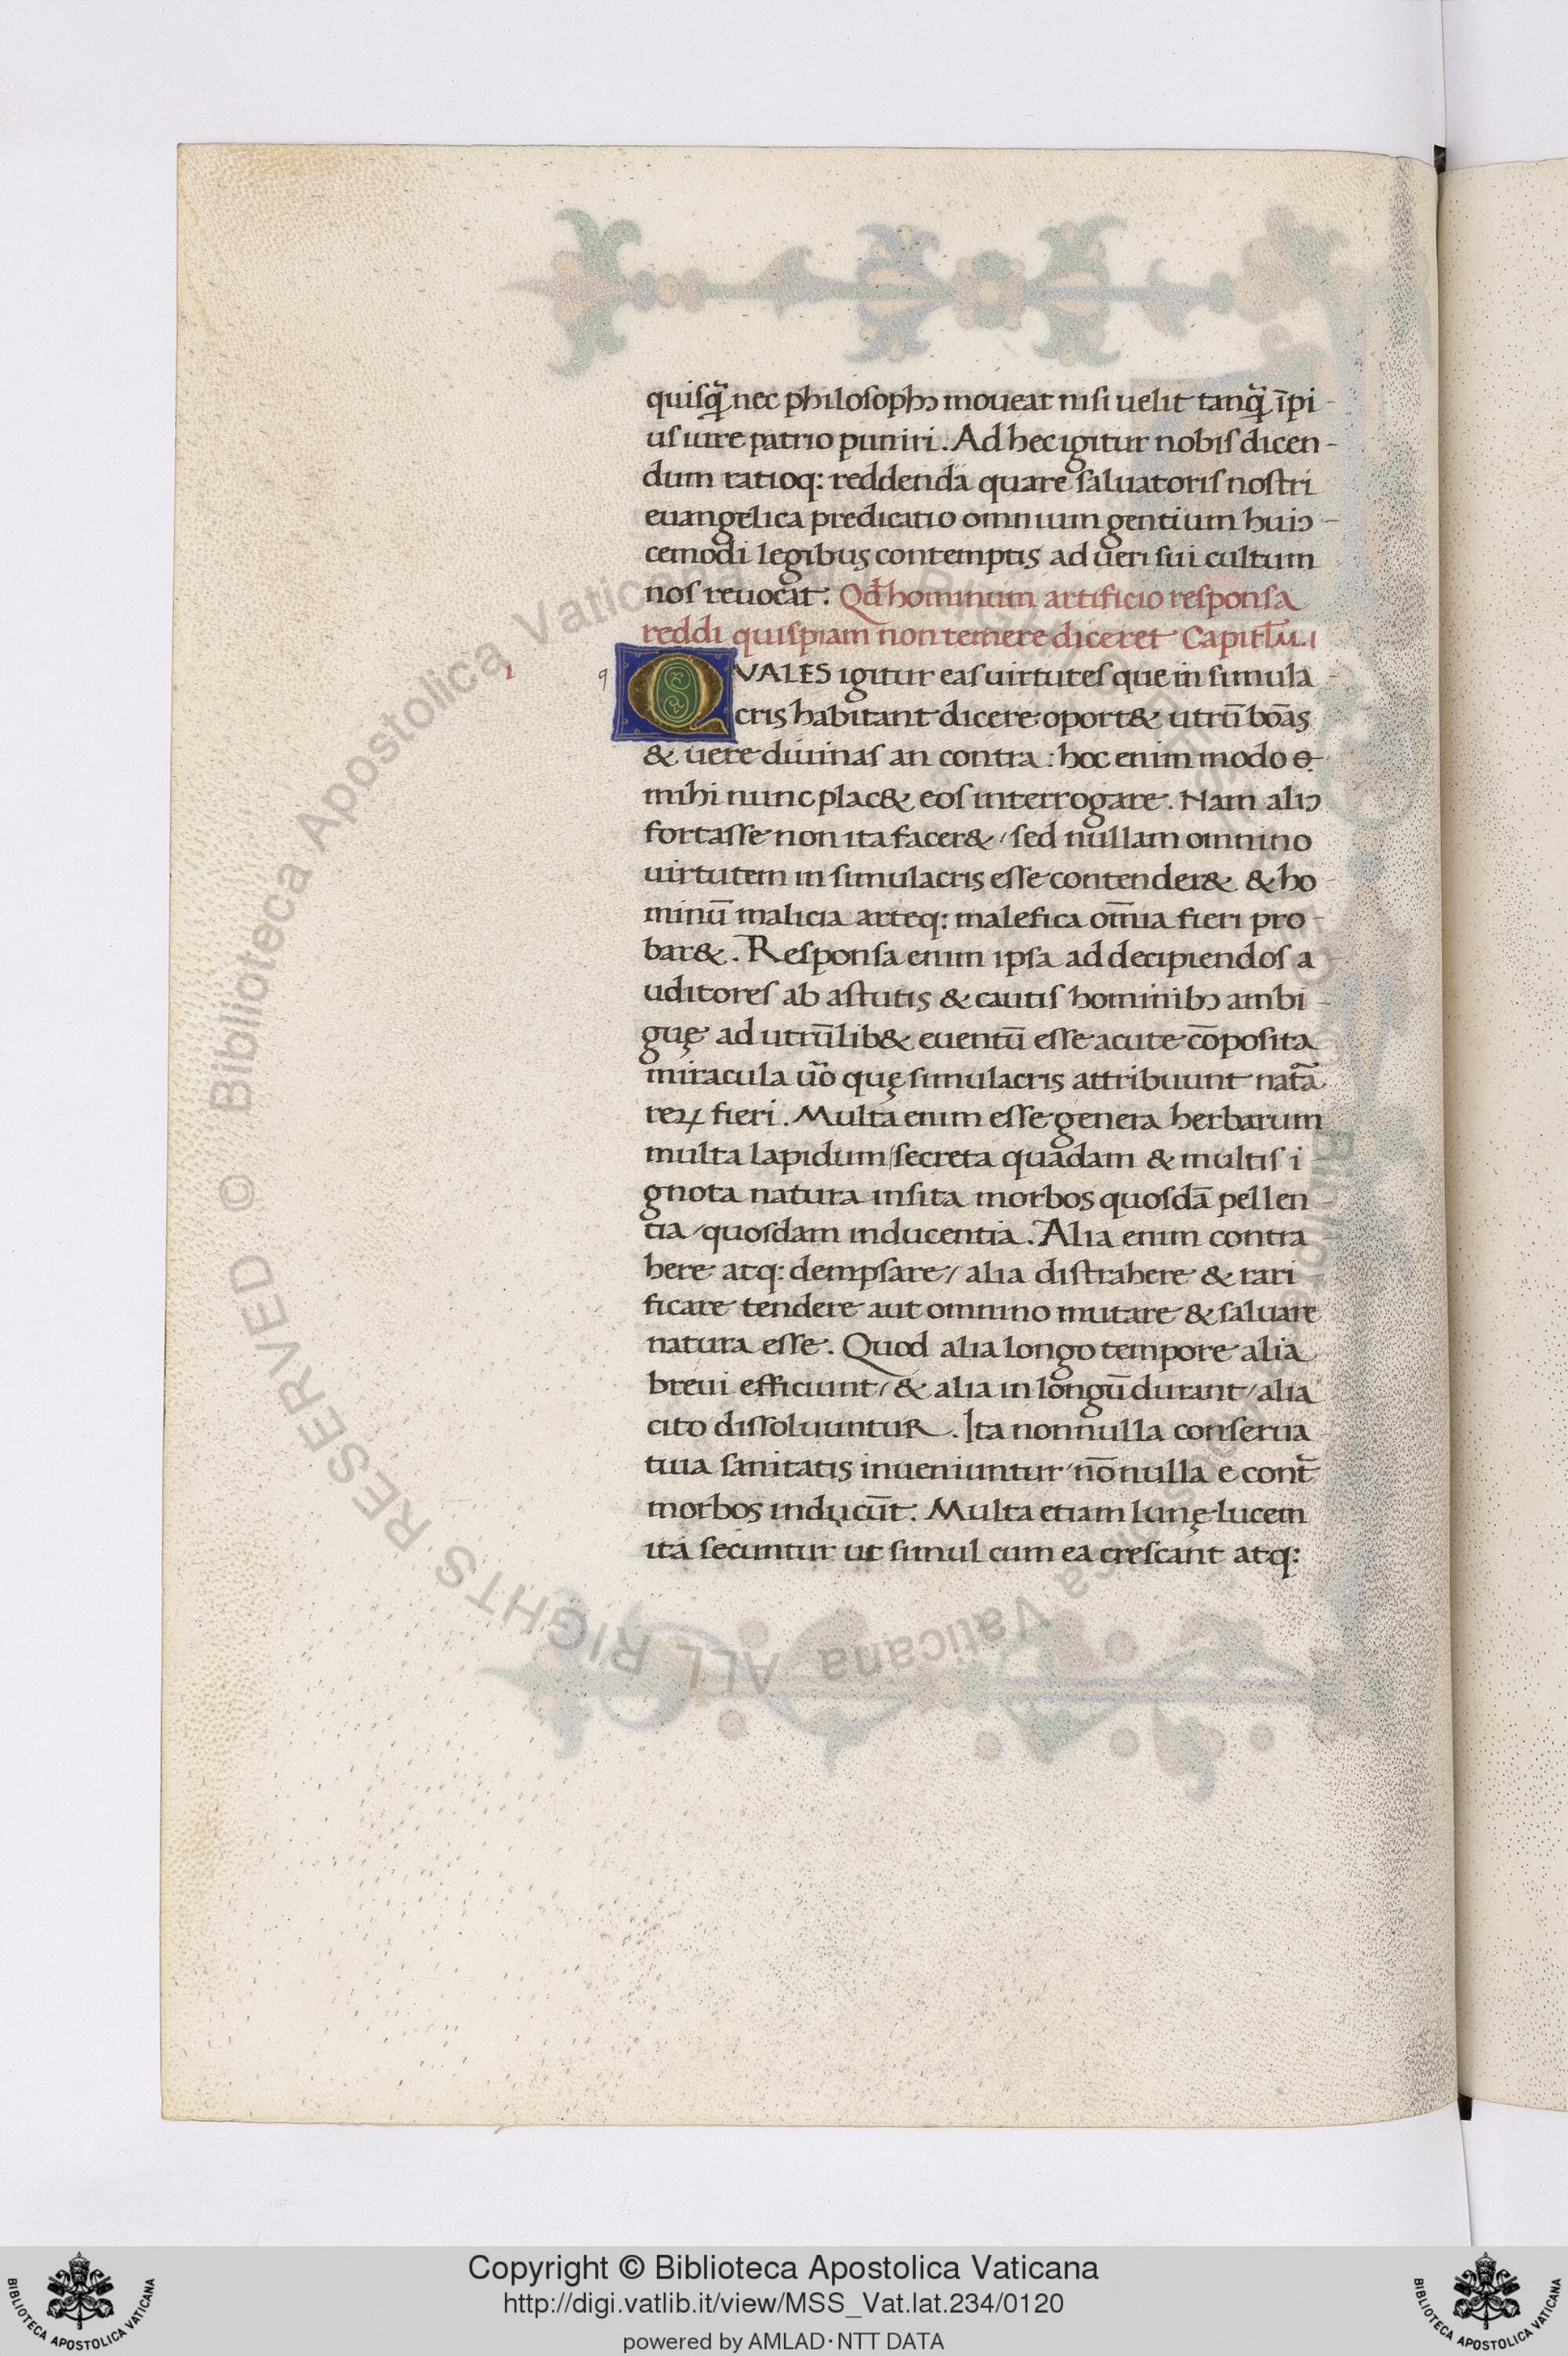 quisq̃ nec philosophꝰ moveat nisi uelit tanq̃ ĩpi-
us iure patrio puniri. Ad hec igitur nobis dicen-
dum ratioq: reddenda quare saluatoris nostri
euangelica predicatio omnium gentium huiꝰ-
cemodi legibus contemptis ad ueri sui cultum
nos reuocat. Qđ hominum artificio responsa
reddi quispiam non temere diceret Capitl̃u.ı
1
q
QVALES igitur eas uirtutes que in simula-
cris habitant dicere oport& utrũ bõas
& uere diuinas an contra: hoc enim modo
mihi nunc plac& eos interrogare. Nam aliꝰ
fortasse non ita facer&/ sed nullam omnino
uirtutem in simulacris esse contender& & ho
minũ malicia arteq: malefica om̃ia fieri pro-
bar&. Responsa enim ipsa ad decipiendos a-
uditores ab astutis & cautis hominibꝰ ambi-
guę ad utrũlib& euentũ esse acute cõposita
miracula ũo quę simulacris attribuunt nat̃a
reꝝ fieri. Multa enim esse genera herbarum
multa lapidum/secreta quadam & multis i
gnota natura insita morbos quosdã pellen-
tia/quosdam inducentia. Alia enim contra
here atq: dempsare/ alia distrahere & rari
ficare tendere aut omnino mutare & saluare
natura esse. Quod alia longo tempore alia
breui efficiunt/& alia in longũ durant/alia
cito dissoluuntur. Ita nonnulla conserua
tiua sanitatis inueniuntur/nõnulla e cont̃
morbos inducũt. Multa etiam lunę lucem
ita secuntur ut simul cum ea crescant atq:
© Biblioteca Apostolica Vaticana ALL RIGHTS RESERVED
Copyright © Biblioteca Apostolica Vaticana
http://digi.vatlib.it/view/MSS_Vat.lat.234/0120
powered by AMLAD·NTT DATA
BIBLIOTECA APOSTOLICA VATICANA
BIBLIOTECA APOSTOLICA VATICANA